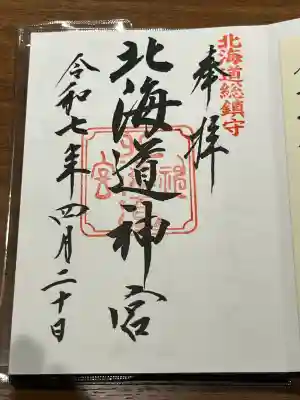 北海道総鎮守
奉拝
北海道神宮
令和七年四月二十日